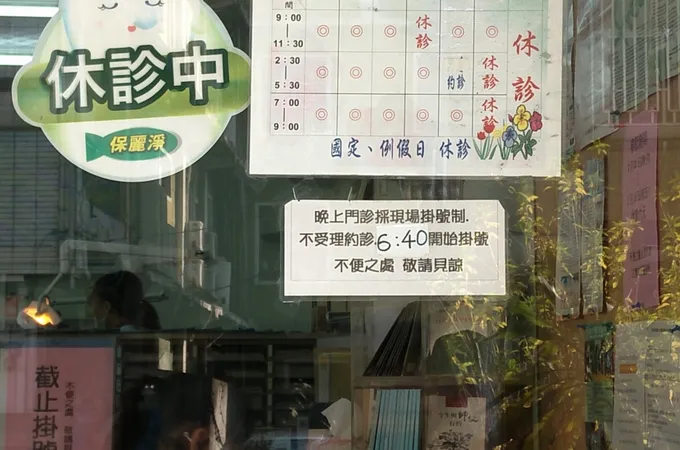 間
9:00
|
11:30
休診
2:30
|
5:30
約診
休診
7:00
|
9:00
休診
休診
國定、例假日 休診
休診中
保麗淨
晚上門診採現場掛號制.
不受理約診.6:40開始掛號
不便之處 敬請見諒
截止掛號
不便之處 敬請